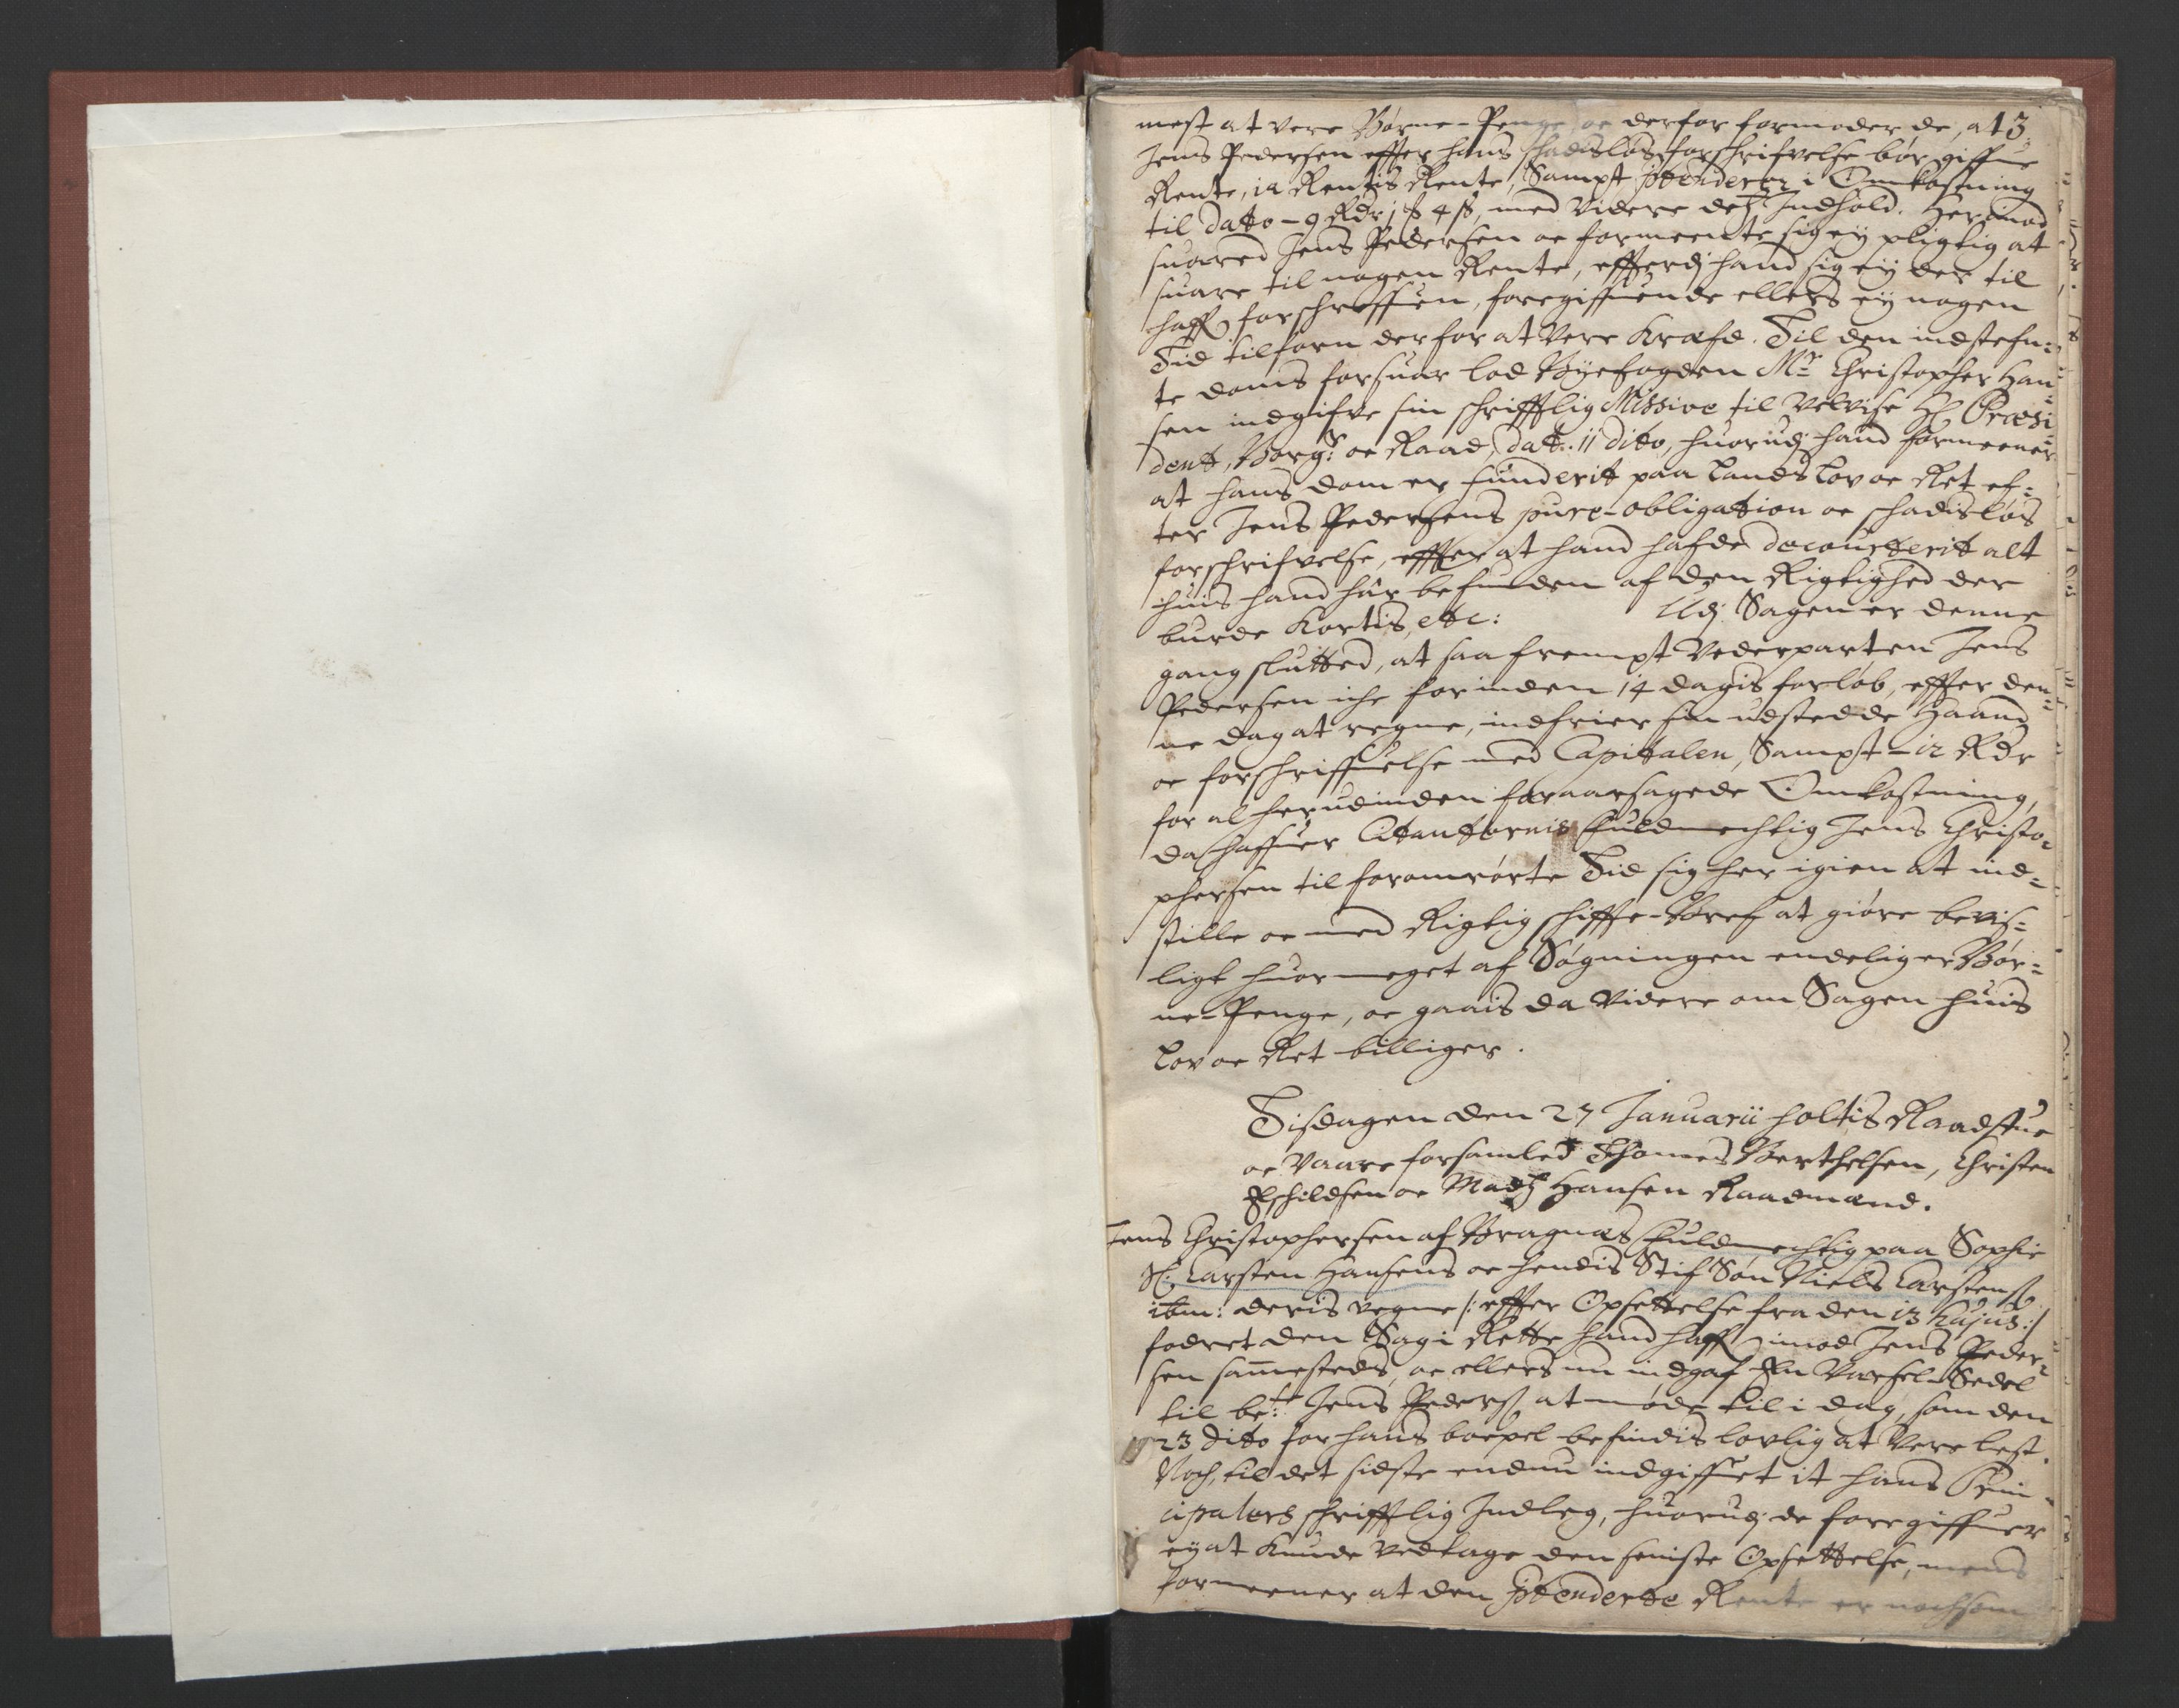 mest at vere Børne-Penge, oc derfor formoder de, at 3
Jens Pedersen effter hans schadisløs forschrifvelse bør giffue
Rente, ia Rentis Rente, Sampt i Omkostning
til dato - 9 Rdr 1 ƒ 4 ß, med videre dets Indhold. Herimod
suared Jens Pedersen oc formeente sig ey pligtig at
suare til nogen Rente, effterdj hand sig ey der til
haffr forschreffuen, foregiffuende ellers ey nogen
Tid tilforn derfor at vere Krafd. Til den indstefn-
te doms forsuar lod Byefogden Mr Christopher Han-
sen indgifve sin schrifftlig Missive til velvise Hr Præsi-
dent, Borgr: oc Raad, dat. 11 dito, huorudj hand formeener
at hans dom er funderit paa Lands Lov oc Ret ef-
ter Jens Pedersens pure-obligation oc schadisløs
forschrifvelse, effter at hand hafde decourterit alt
huis hand har befunden af den Rigtighed der
burde Kortis, etc: Udj Sagen er denne
gang slutted, at saafrempt Vederparten Jens
Pedersen iche forinden 14 dagis forløb, effter den-
ne dag at regne, indfrier sin udstedde Haand
oc forschriffuelse med Capitalen, Sampt - 12 Rdr
for al herudinden foraarsagede Omkostning,
da haffuer Citantornis fuldmechtig Jens Christo-
phersen til foromrørte Tid sig her igien at ind-
stille oc med Rigtig schiffte-bref at giøre bevis-
ligt huor meget af Søgningen endelig er Bør-
ne-Penge, oc gaais da videre om Sagen huis
Lov oc Ret billiger.
Tisdagen den 27 Januarii holtis Raadstue
oc vaare forsamled Thomes Berthelsen, Christen
Eschildsen oc Madtz Hansen Raadmænd.
Jens Christophersen af Bragnæs fuldmechtig paa Sophie
Sl: Carsten Hansens oc hendis Stif Søn Niels Carstenß
ibm: deris vegne /: effter Opsettelse fra den 13 hujus :/
fodret den Sag i Rette hand haffr imod Jens Peder-
sen sam̄esteds, oc ellers nu indgaf En Varsel-Sedel
til bete: Jens Pederß at møde til i dag, som den
23 dito for hans boepel befindis lovlig at vere lest.
Noch, til det sidste endnu indgiffuet it hans Prin-
cipalers schrifftlig Indleg, huorudj de foregiffuer
ey at kunde vedtage den seniste Opsettelse, mens
formeener at den Rente er nochsom